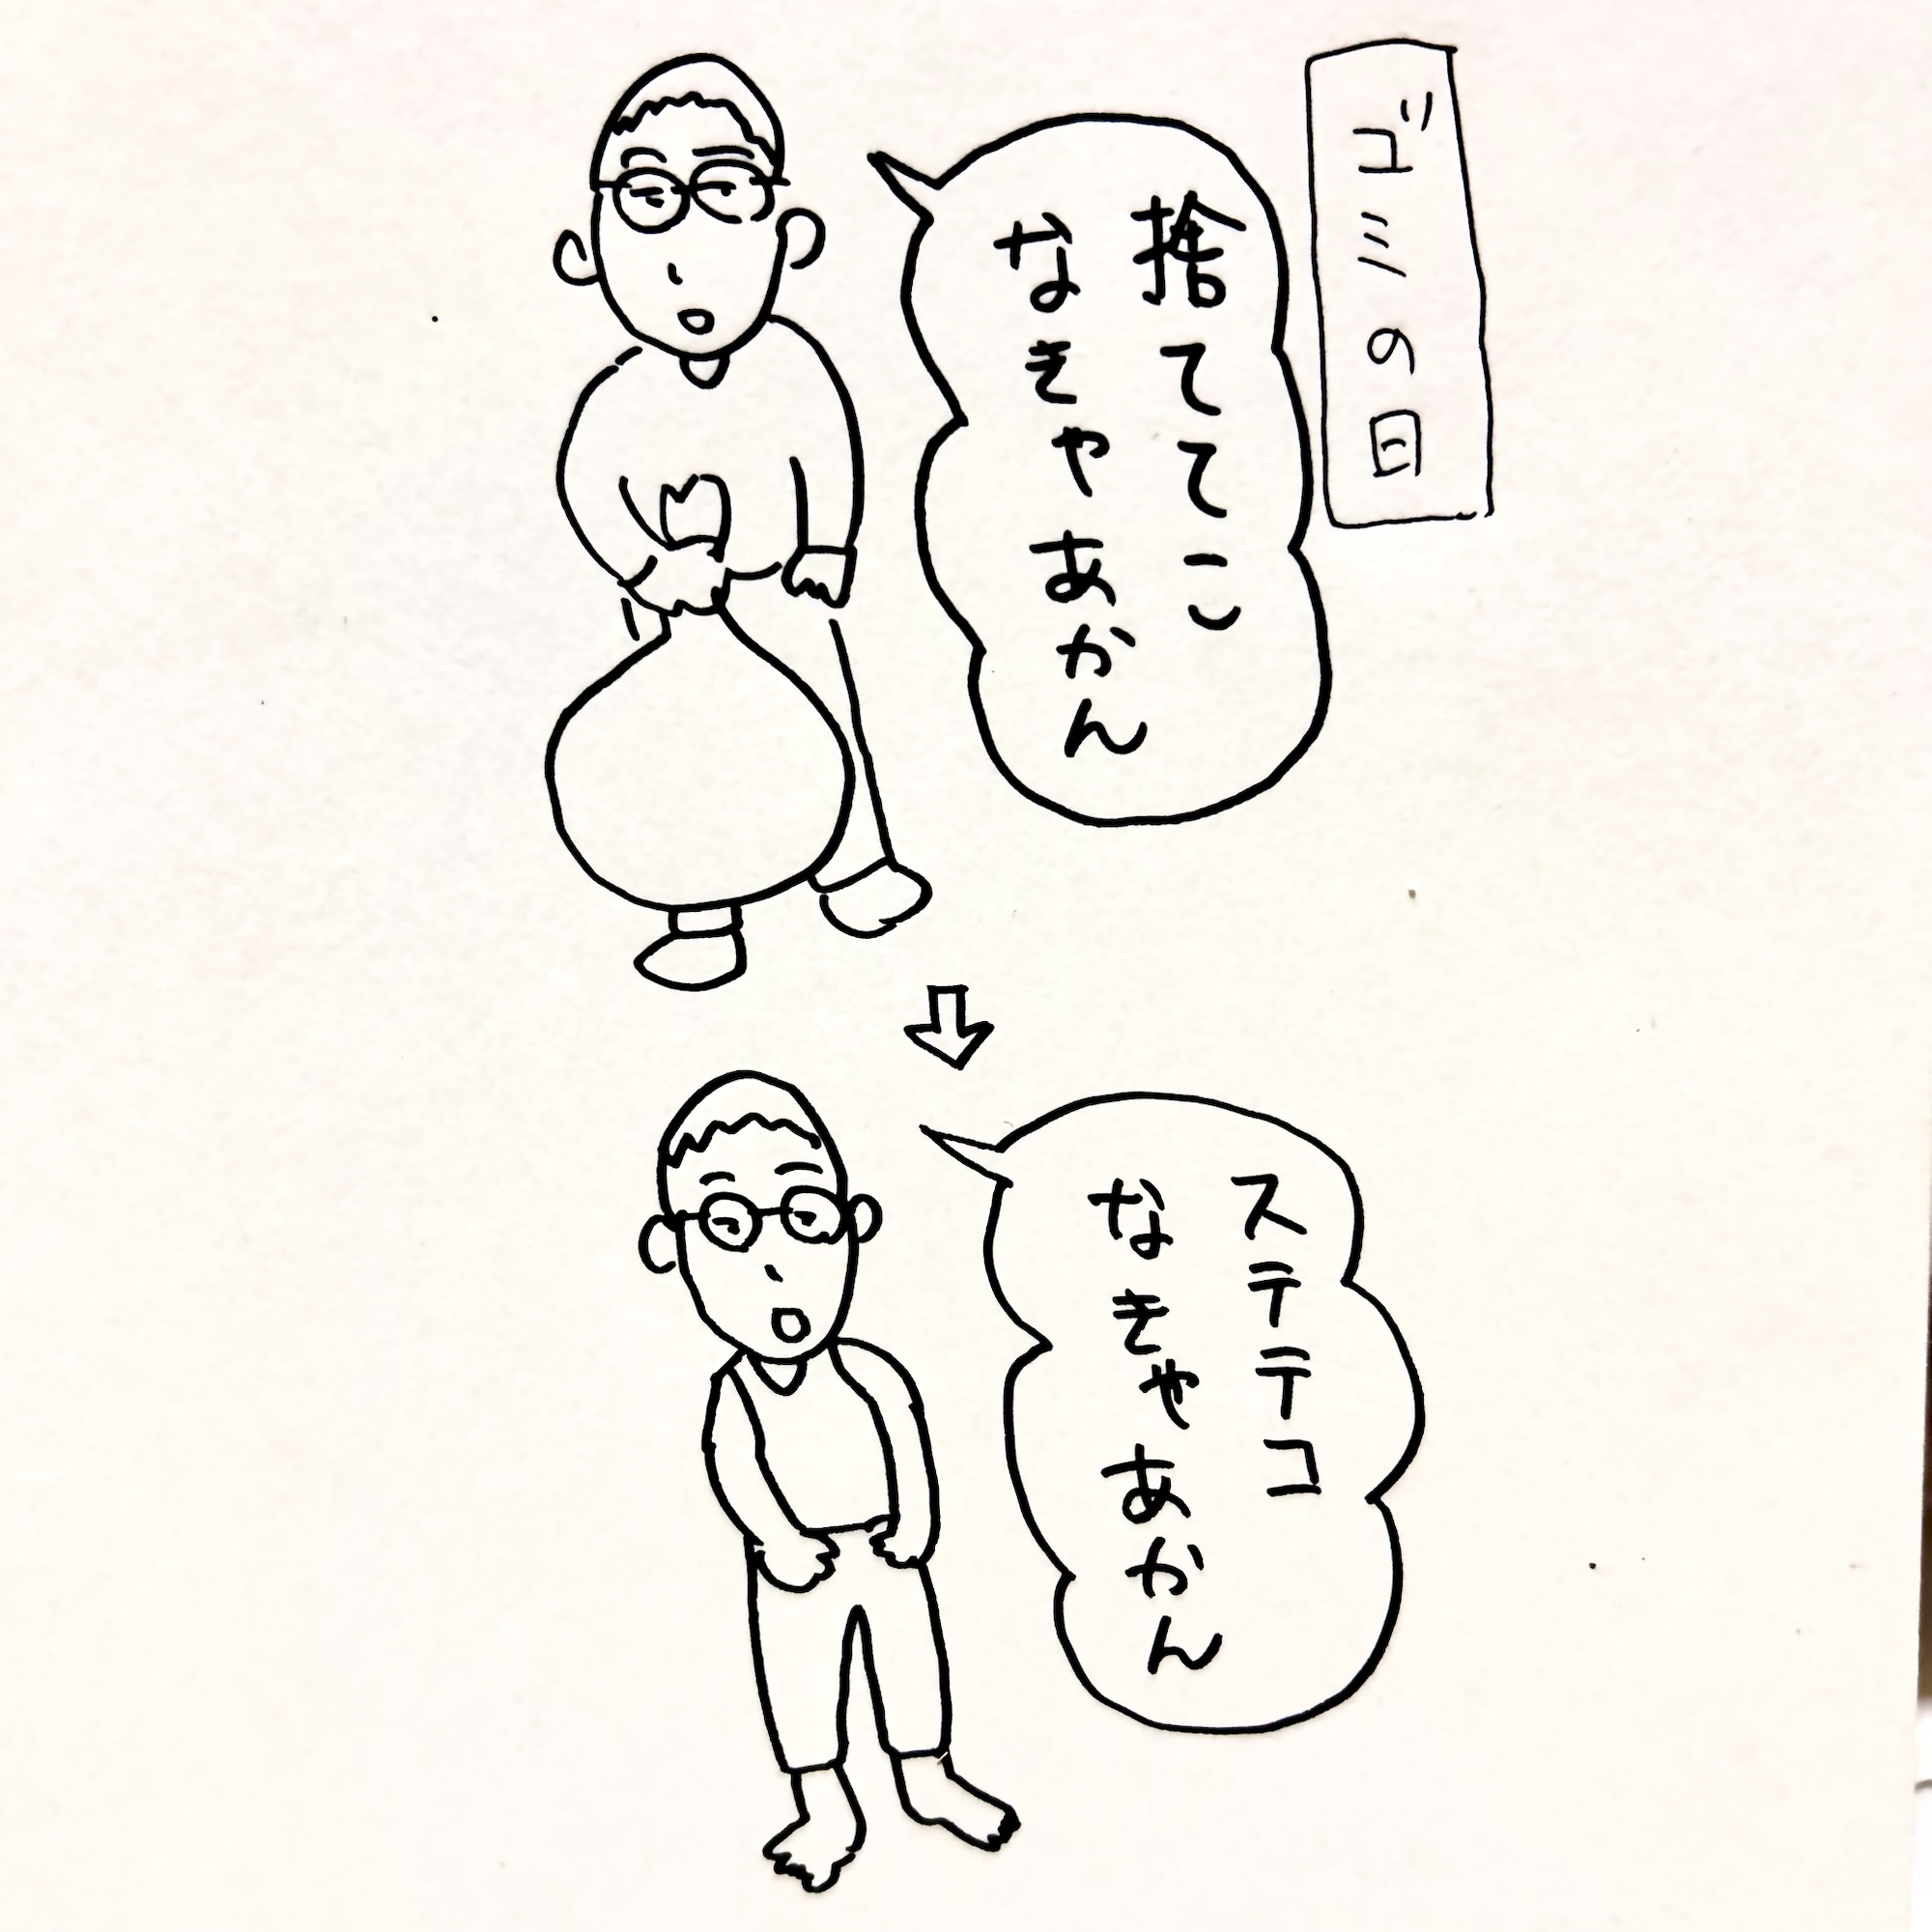 ゴミの日
捨ててこ
なきゃあかん
ステテコ
なきゃあかん